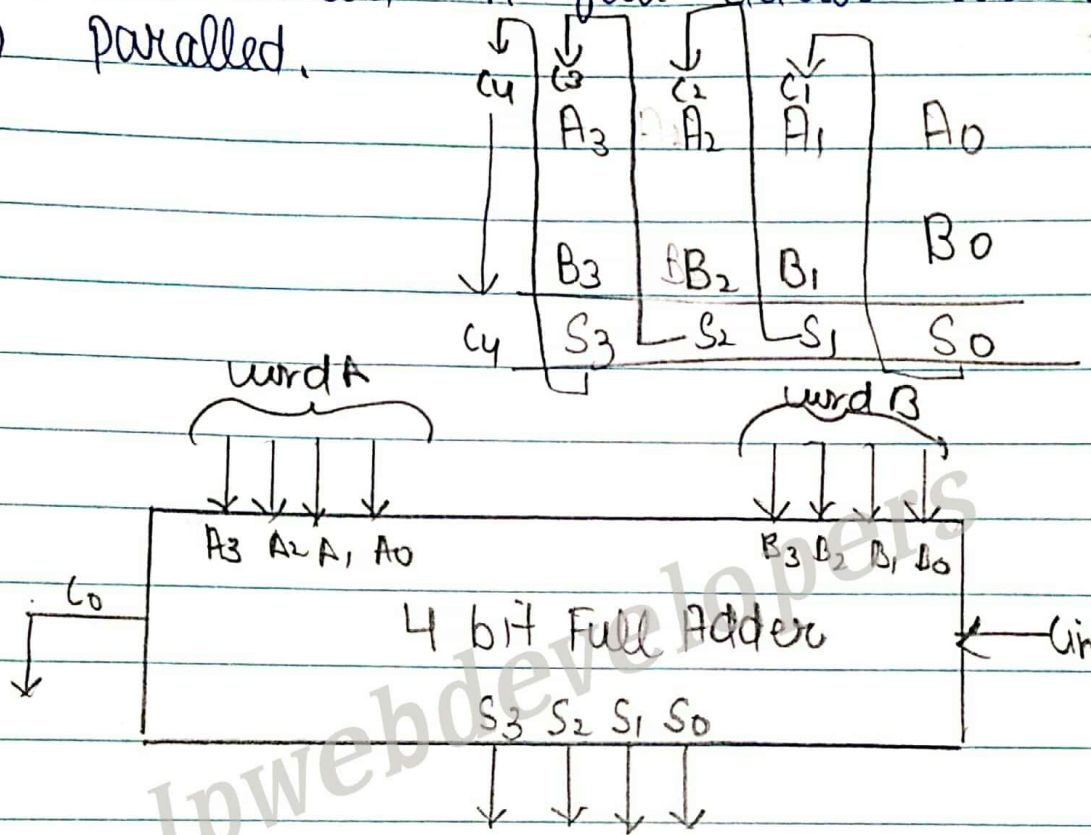 paralled.
C4 C3 C2 C1
A3 A2 A1 A0
B3 BB2 B1 B0
C4 S3 S2 S1 S0
word A word B
A3 A2 A1 A0 B3 B2 B1 B0
C0
4 bit Full Adder
Cin
S3 S2 S1 S0
lpwebdevelopers